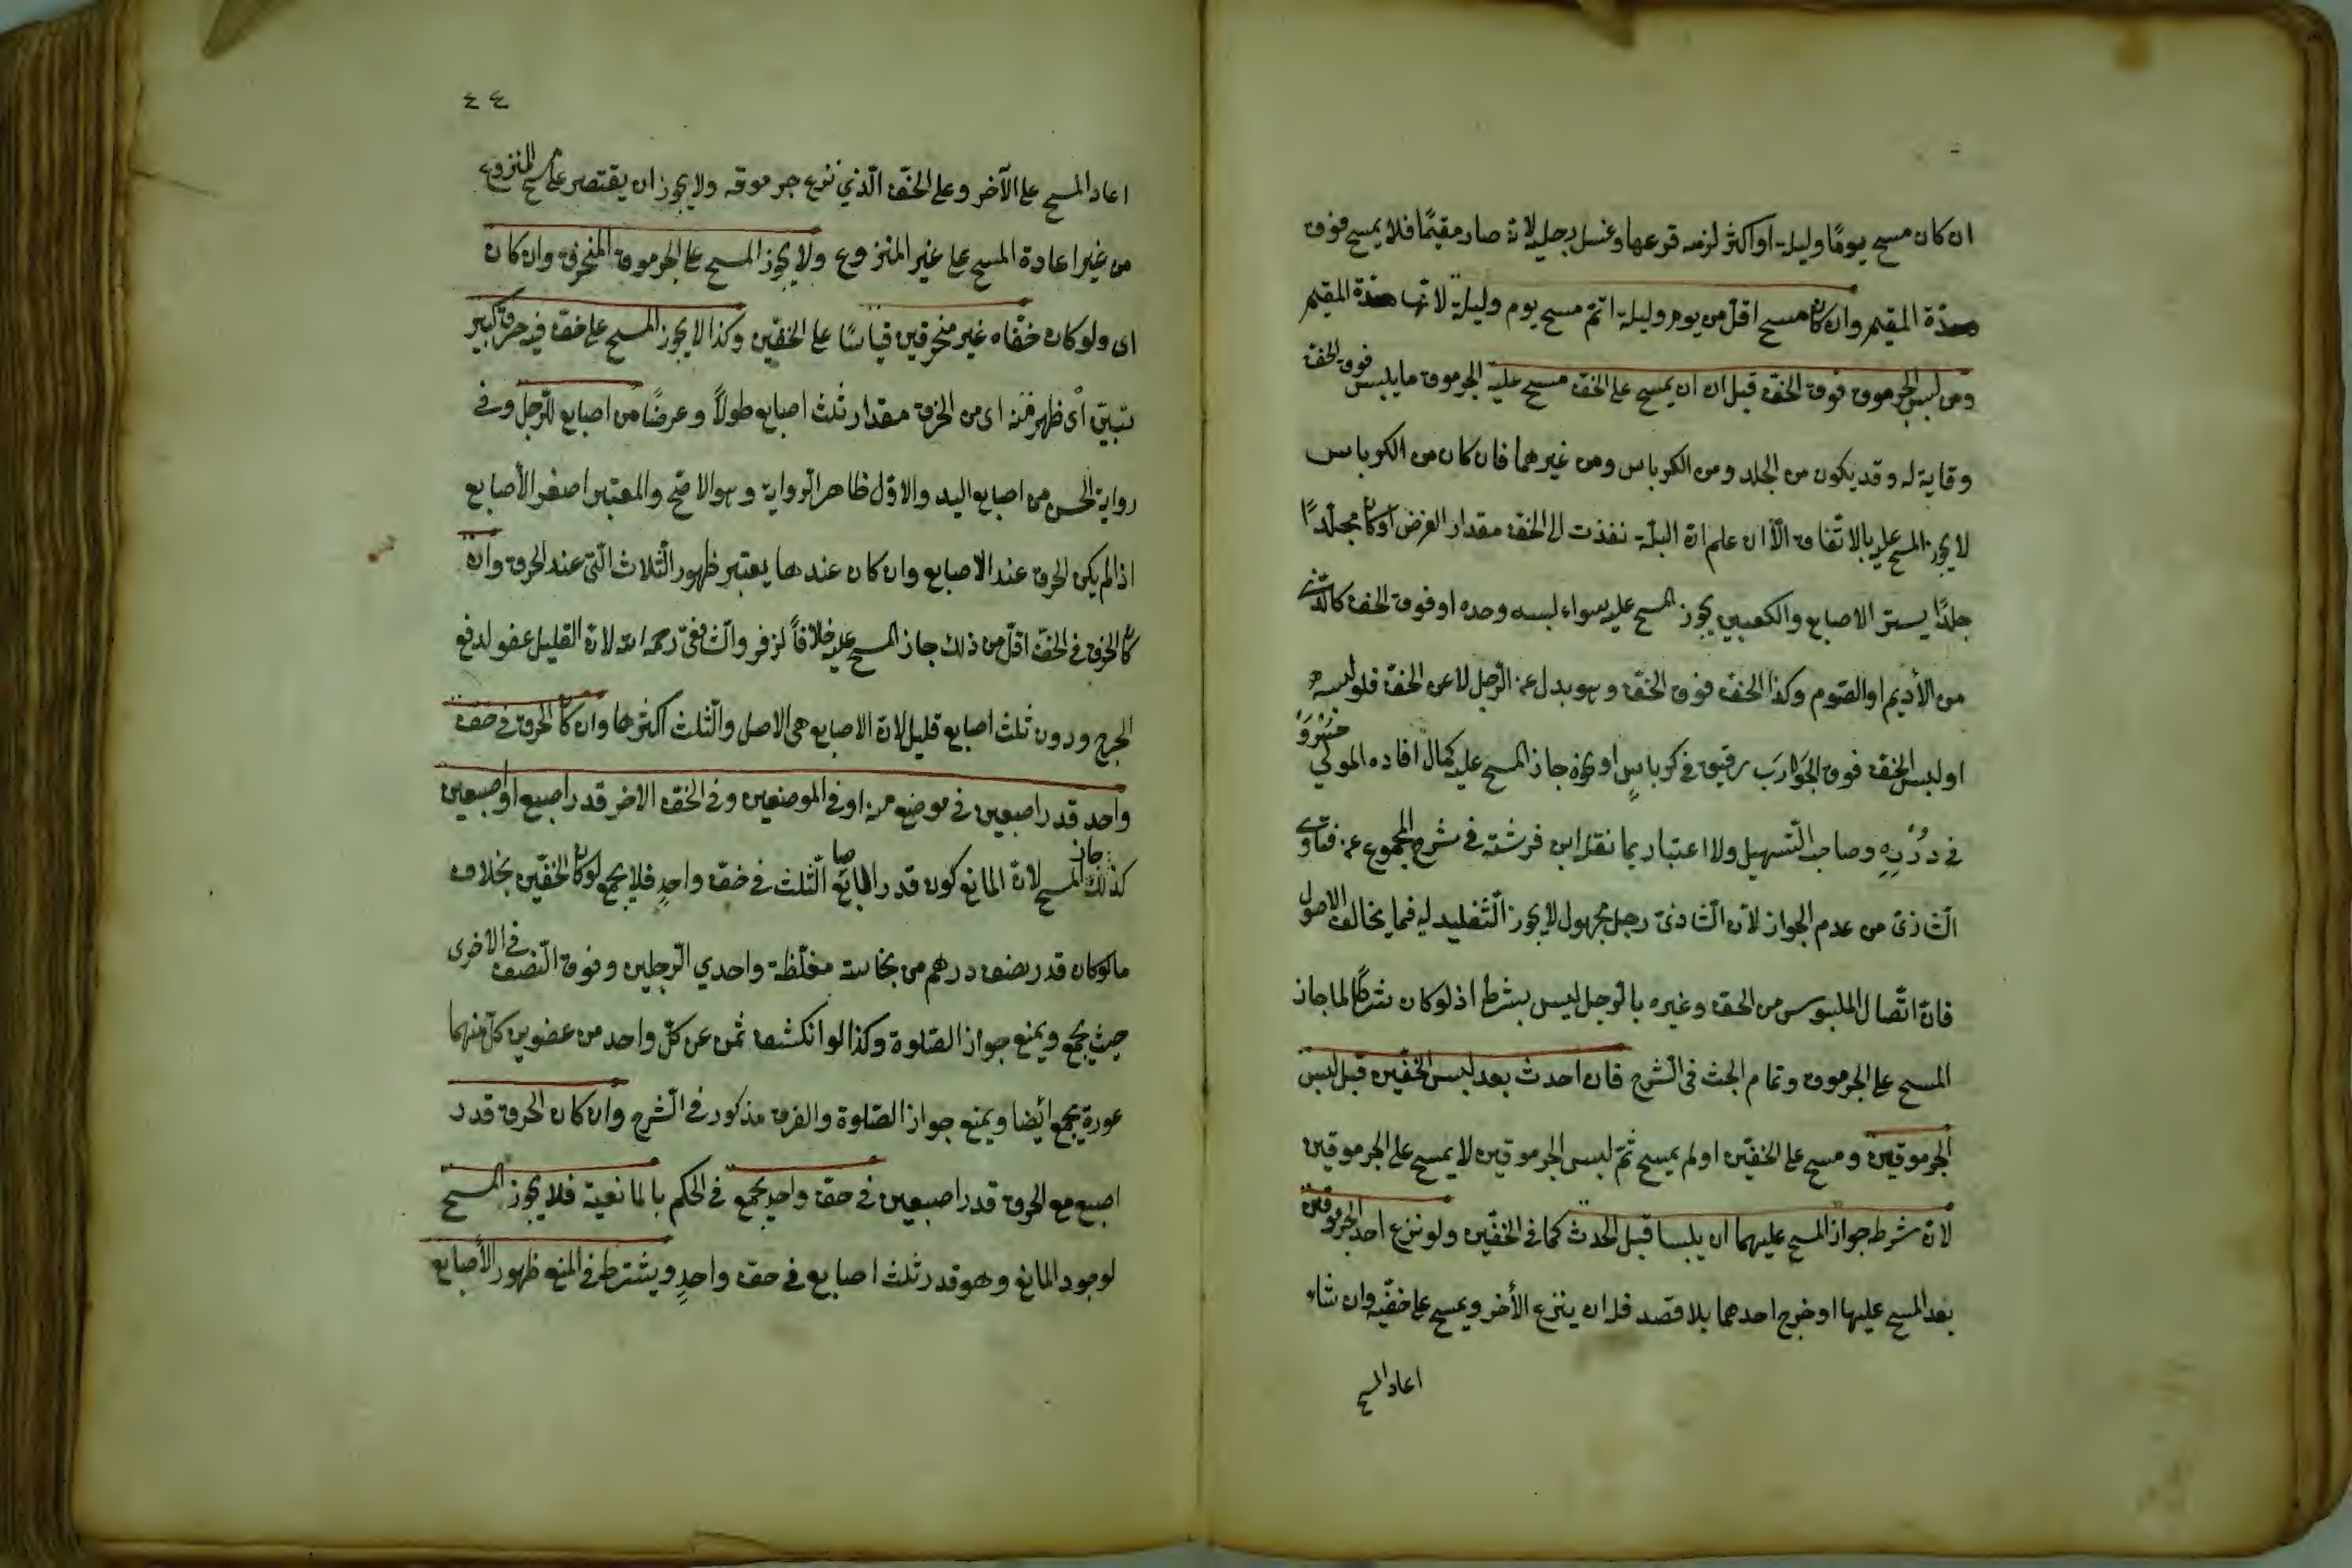 ان كان مسح يومًا وليلة او اكثر لزمه نزعها وغسل رجليه لانّه صار مقيمًا فلا يمسح فوق
مدّة المقيم وان كان مسح اقلّ من يوم وليلة اتمّ مسح يوم وليلة لانّها مدّة المقيم
ومن لبس الجرموق فوق الخفّ قبل ان يمسح على الخفّ مسح عليه الجرموق ما يلبس فوق الخفّ
وقاية له وقد يكون من الجلد ومن الكرباس ومن غيرهما فان كان من الكرباس
لا يجوز المسح عليه بالاتّفاق الّا ان علم انّ البلّة نفذت الى الخفّ مقدار الفرض او كان مجلّدًا
جلدًا يستر الاصابع والكعبين يجوز المسح عليه سواء لبسه وحده او فوق الخفّ كالّذى
من الأديم او الصّوم وكذا الخفّ فوق الخفّ وهو بدل عن الرّجل لا عن الخفّ فلو لبسه
او لبس الخفّ فوق الجَوَارَب رقيق فى كرباسٍ او نحوه جاز المسح عليه كمال افاده المولى خُسْرَوْ
فى دُرَرِهِ وصاحب التّسهيل ولا اعتبار بما نقل ابن فرشته فى شرح المجمع عن فتاوى
الشّاذىّ من عدم الجواز لأنّ الشّاذىّ رجل مجهول لا يجوز التّقليد له فيما يخالف الاصول
فانّ اتّصال الملبوس من الخفّ وغيره بالرّجل ليس بشرط اذ لو كان شرطًا لما جاز
المسح على الجرموق وتمام البحث فى الشّرح فان احدث بعد لبس الخفّين قبل لبس
الجرموقين ومسح على الخفّين او لم يمسح ثمّ لبس الجرموقين لا يمسح على الجرموقين
لانّ شرط جواز المسح عليهما ان يلبسا قبل الحدث كما فى الخفّين ولو نزع احد الجرموقين
بعد المسح عليها او خرج احدهما بلا قصد فله ان ينزع الأخر ويمسح على خفّيه وان شاء
اعاد المسح
٤٤
اعاد المسح على الآخر وعلى الخفّ الّذي نزع جرموقه ولا يجوز ان يقتصر على مسح المنزوع
من غير اعادة المسح على غير المنزوع ولا يجوز المسح على الجرموق المنخرق وان كان
اى ولو كان خفّاه غير منخرقين قياسًا على الخفّين وكذا لا يجوز المسح على خفّ فيه خرق كبير
تبيّن أى ظهر منه اى من الخرق مقدار ثلث اصابع طولاً وعرضًا من اصابع الرّجل وفى
رواية الحسن من اصابع اليد والاوّل ظاهر الرّواية وهو الاصّح والمعتبر اصغر الأصابع
اذا لم يكن الخرق عند الاصابع وان كان عندها يعتبر ظهور الثّلاث الّتى عند الخرق وان
كان الخرق فى الخفّ اقلّ من ذلك جاز المسح عليه خلافاً لزفر والشّافعىّ رحمه الله لانّ القليل عفو لدفع
الحرج ودون ثلث اصابع قليل لانّ الاصابع هى الاصل والثّلث اكثرها وان كان الخرق فى خفّ
واحد قدر اصبعين فى موضع منه او فى الموضعين وفى الخفّ الاخر قدر اصبع او اصبعين
كذلك جاز المسح لانّ المانع كون قدر المانع الثّلث فى خفّ واحدٍ فلا يجمع لو كان الخفّين بخلاف
ما لو كان قدر نصف درهم من نجاسة مغلّظة واحدي الرّجلين وفوق النّصف فى الاخرى
حيث يجمع ويمنع جواز الصّلوة وكذا لو انكشف ثمن عن كلّ واحد من عضوين كلّ منهما
عورة يجمع ايضا ويمنع جواز الصّلوة والفرق مذكور فى الشّرح وان كان الخرق قدر
اصبع مع الخرق قدر اصبعين فى خفّ واحدٍ يجمع فى الحكم بالمانعية فلا يجوز المسح
لوجود المانع وهو قدر ثلث اصابع فى خفّ واحدٍ ويشترط فى المنع ظهور الأصابع